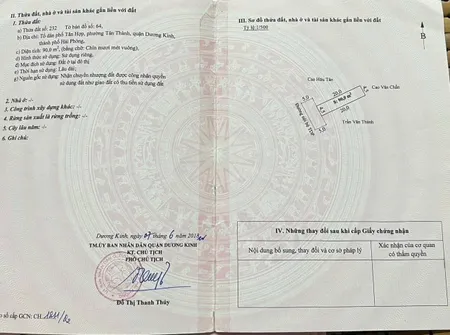 II. Thửa đất, nhà ở và tài sản khác gắn liền với đất
1. Thửa đất:
a) Thửa đất số: 232 Tờ bản đồ số: 64,
b) Địa chỉ: Tổ dân phố Tân Hợp, phường Tân Thành, quận Dương Kinh,
thành phố Hải Phòng,
c) Diện tích: 90,0 m², (bằng chữ: Chín mươi mét vuông),
d) Hình thức sử dụng: Sử dụng riêng,
đ) Mục đích sử dụng: Đất ở tại đô thị
e) Thời hạn sử dụng: Lâu dài;
g) Nguồn gốc sử dụng: Nhận chuyển nhượng đất được công nhận quyền
sử dụng đất như giao đất có thu tiền sử dụng đất
2. Nhà ở: -/-
3. Công trình xây dựng khác: -/-
4. Rừng sản xuất là rừng trồng: -/-
5. Cây lâu năm: -/-
6. Ghi chú:
Dương Kinh, ngày 07 tháng 6 năm 2018
TM.ỦY BAN NHÂN DÂN QUẬN DƯƠNG KINH
KT. CHỦ TỊCH
PHÓ CHỦ TỊCH
Đỗ Thị Thanh Thủy
số cấp GCN: CH
III. Sơ đồ thửa đất, nhà ở và tài sản khác gắn liền với đất
Tỷ lệ 1/500
Cao Hữu Tân
5,0
20,0
90,0
20,0
Cao Văn Chấn
Trần Văn Thành
IV. Những thay đổi sau khi cấp Giấy chứng nhận
Nội dung bổ sung, thay đổi và cơ sở pháp lý
Xác nhận của cơ quan
có thẩm quyền